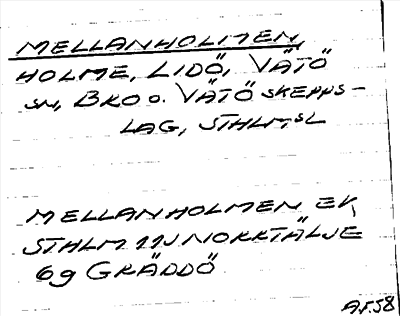 MELLANHOLMEN,
HOLME, LIDÖ, VÄTÖ
SN, BRO O. VÄTÖ SKEPPS-
LAG, STHLMS L
MELLANHOLMEN EK,
STHLM 11J NORRTÄLJE
6g GRÄDDÖ
A.F.58